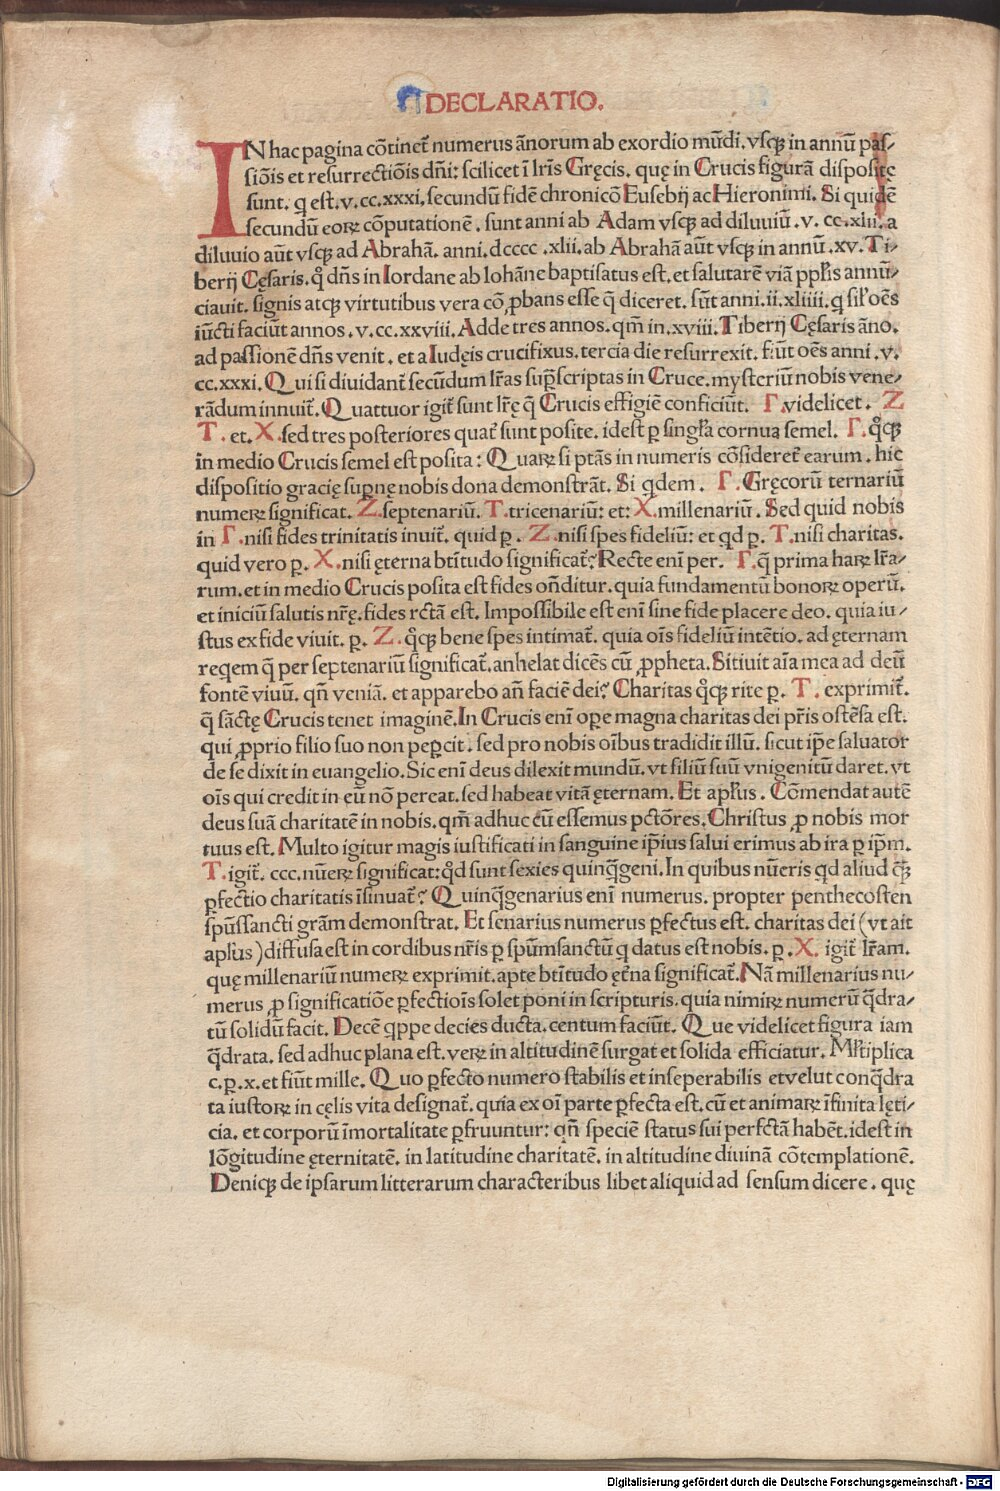 DECLARATIO.
IN hac pagina cōtinet᷑ numerus ānorum ab exordio mūdi. vsqꝫ in annū pas⸗
siōis et resurrectiōis dn̄i: scilicet ī lr̄is Gręcis. quę in Crucis figurā disposite
sunt. q est. v. cc. xxxi. secundū fidē chronicō Eusebij ac Hieronimi. Si quidē
secundū eoꝝ cōputationē. sunt anni ab Adam vsqꝫ ad diluuiū. v. cc. xlii. a
diluuio aūt vsqꝫ ad Abrahā. anni. dcccc. xlii. ab Abrahā aūt vsqꝫ in annū. xv. Ti⸗
berij Cęsaris. qͦ dn̄s in Iordane ab Iohāne baptisatus est. et salutarē viā ppl̄is annū⸗
ciauit. signis atqꝫ virtutibus vera cō ꝓbans esse q̄ diceret. sūt anni. ii. xliiii. q sil̄ oēs
iūcti faciūt annos. v. cc. xxviii. Adde tres annos. qm̄ in. xviii. Tiberij Cęsaris āno.
ad passionē dn̄s venit. et a Iudęis crucifixus. tercia die resurrexit. fiūt oēs anni. v.
cc. xxxi. Qui si diuidant᷑ secūdum lr̄as supͣscriptas in Cruce. mysteriū nobis vene⸗
rādum innuit᷑. Quattuor igit᷑ sunt lr̄ę q̄ Crucis effigiē conficiūt. Γ. videlicet. Z
T. et. X. sed tres posteriores quat᷑ sunt posite. idest ꝑ singl̄a cornua semel. Γ. qͦqꝫ
in medio Crucis semel est posita: Quaꝝ si ptās in numeris cōsideret᷑ earum. hic
dispositio gracię supͥnę nobis dona demonstrāt. Si qdem. Γ. Gręcorū ternariū
numeꝝ significat. Z. septenariū. T. tricenariū: et: X. millenariū. Sed quid nobis
in Γ. nisi fides trinitatis inuit᷑. quid ꝑ. Z. nisi spes fideliū: et qd ꝑ. T. nisi charitas.
quid vero ꝑ. X. nisi ęterna btītudo significat᷑? Recte enī per. Γ. q̄ prima haꝝ lr̄a⸗
rum. et in medio Crucis posita est fides on̄ditur. quia fundamentū bonoꝝ operū.
et iniciū salutis nr̄ę. fides rctā est. Impossibile est enī sine fide placere deo. quia iu⸗
stus ex fide viuit. ꝑ. Z. qͦqꝫ bene spes intimat᷑. quia oīs fideliū intētio. ad ęternam
reqem q̄ per septenariū significat᷑. anhelat dicēs cū ꝓpheta. Sitiuit aīa mea ad deū
fontē viuū. qn̄ veniā. et apparebo an̄ faciē dei? Charitas qͦqꝫ rite ꝑ. T. exprimit᷑.
q̄ sāctę Crucis tenet imaginē. In Crucis enī oꝑe magna charitas dei pr̄is ostēsa est.
qui ꝓprio filio suo non peꝑcit. sed pro nobis oībus tradidit illū. sicut ip̄e saluator
de se dixit in euangelio. Sic enī deus dilexit mundū. vt filiū suū vnigenitū daret. vt
oīs qui credit in eū nō pereat. sed habeat vitā ęternam. Et apl̄us. Cōmendat autē
deus suā charitatē in nobis. qm̄ adhuc cū essemus pctōres. Christus ꝓ nobis mor
tuus est. Multo igitur magis iustificati in sanguine ip̄ius salui erimus ab ira ꝑ ip̄m.
T. igit᷑. ccc. nūeꝝ significat: qͦd sunt sexies quinqͣgeni. In quibus nūeris qd aliud qͣꝫ
ꝑfectio charitatis īsinuat᷑? Quinqͣgenarius enī numerus. propter penthecosten
sp̄ussancti grām demonstrat. Et senarius numerus ꝑfectus est. charitas dei (vt ait
apl̄us) diffusa est in cordibus nr̄is ꝑ sp̄umsanctū q datus est nobis. ꝑ. X. igit᷑ lr̄am.
quę millenariū numeꝝ exprimit. apte btītudo ęt̄na significat᷑. Nā millenarius nu⸗
merus ꝓ significatiōe ꝑfectiois solet poni in scripturis. quia nimiꝝ numerū qͣdra⸗
tū solidū facit. Decē qppe decies ducta. centum faciūt. Que videlicet figura iam
qͣdrata. sed adhuc plana est. veꝝ in altitudinē surgat et solida efficiatur. Ml̄tiplica
c. ꝑ. x. et fiūt mille. Quo ꝑfecto numero stabilis et inseperabilis et velut conqͣdra
ta iustoꝝ in cęlis vita designat᷑. quia ex oī parte ꝑfecta est. cū et animaꝝ īfinita lęti⸗
cia. et corporū īmortalitate ꝑfruuntur: qn̄ speciē status sui perfctā habēt. idest in
lōgitudine ęternitatē. in latitudine charitatē. in altitudine diuinā cōtemplationē.
Deniqꝫ de ipsarum litterarum characteribus libet aliquid ad sensum dicere. quę
Digitalisierung gefördert durch die Deutsche Forschungsgemeinschaft - DFG